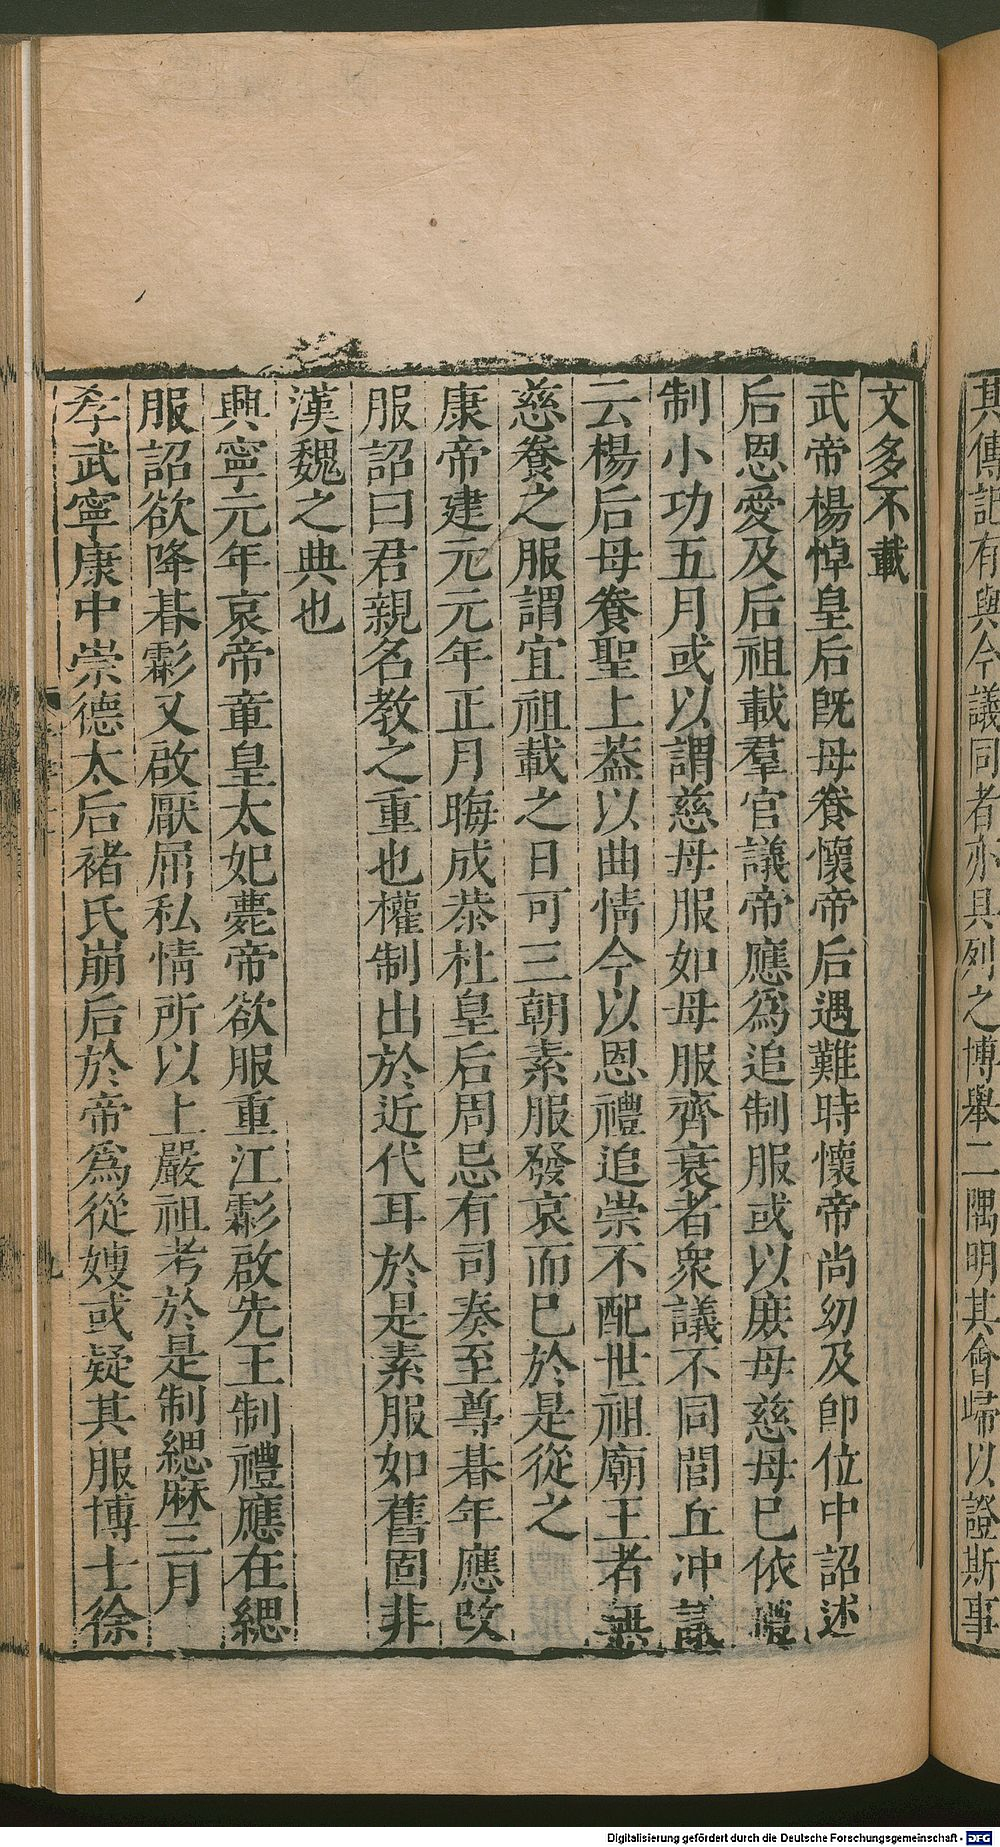 其傳記有與今議同者亦具列之博舉二隅明其會歸以證斯事
文多不載
武帝楊悼皇后旣母養懷帝后遇難時懷帝尚幼及卽位中詔述
后恩愛及后祖載羣官議帝應爲追制服或以庶母慈母已依禮
制小功五月或以謂慈母服如母服齊衰者衆議不同閭丘冲議
云楊后母養聖上葢以曲情今以恩禮追崇不配世祖廟王者無
慈養之服謂宜祖載之日可三朝素服發哀而已於是從之
康帝建元元年正月晦成恭杜皇后周忌有司奏至尊朞年應改
服詔曰君親名教之重也權制出於近代耳於是素服如舊固非
漢魏之典也
興寧元年哀帝章皇太妃薨帝欲服重江虨啟先王制禮應在緦
服詔欲降朞虨又啟厭屈私情所以上嚴祖考於是制緦麻三月
孝武寧康中崇德太后褚氏崩后於帝爲從嫂或疑其服博士徐
Digitalisierung gefördert durch die Deutsche Forschungsgemeinschaft - DFG